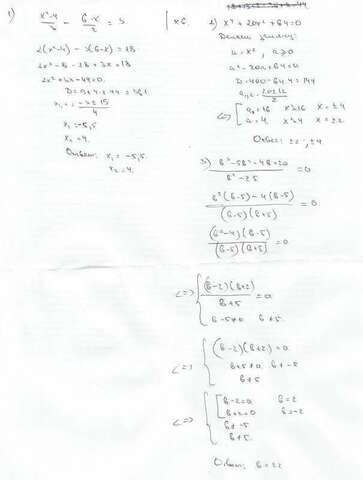 1) (x²-4)/3 - (6-x)/2 = 3. | x6
2(x²-4) - 3(6-x) = 18
2x² - 8 - 18 + 3x = 18
2x² + 3x - 44 = 0.
D = 9 + 4·2·44 = 361
x₁,₂ = (-3±15)/4
x₁ = -5,5
x₂ = 4.
Ответ: x₁ = -5,5
x₂ = 4.
2) x⁴ - 20x² + 64 = 0
Делаем замену:
a = x², a ≥ 0
a² - 20a + 64 = 0
D = 400 - 64·4 = 144
a₁,₂ = (20±12)/2
<=> [ a₁ = 16 x² = 16 x = ±4
a = 4 x² = 4 x = ±2
Ответ: ±2, ±4.
3) (b³ - 5b² - 4b + 20)/(b² - 25) = 0.
(b²(b-5) - 4(b-5))/((b-5)(b+5)) = 0
((b²-4)(b-5))/((b-5)(b+5)) = 0
<=> { ((b-2)(b+2))/(b+5) = 0
b-5≠0 b≠5.
<=> { (b-2)(b+2) = 0
b+5≠0 b≠-5
b≠5
<=> { [ b-2=0 b=2
b+2=0 b=-2
b≠-5
b≠5.
Ответ: b = ±2